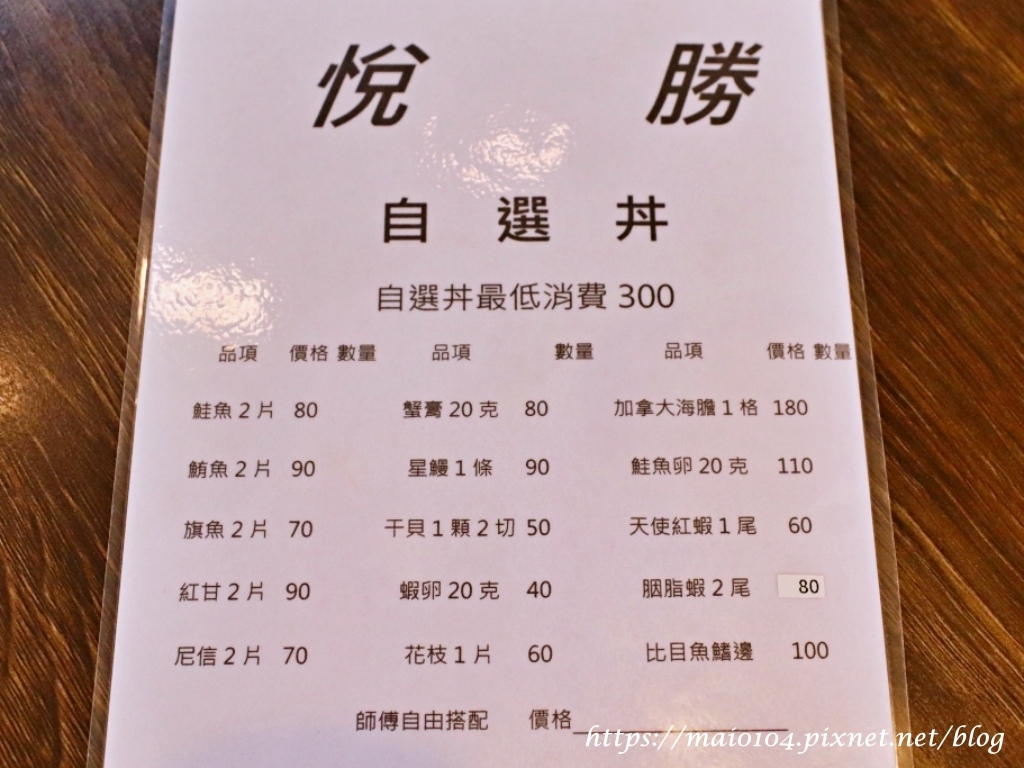 悅 勝
自 選 丼
自選丼最低消費 300
品項 價格 數量 品項 數量 品項 價格 數量
鮭魚 2 片 80 蟹膏 20 克 80 加拿大海膽 1 格 180
鮪魚 2 片 90 星鰻 1 條 90 鮭魚卵 20 克 110
旗魚 2 片 70 干貝 1 顆 2 切 50 天使紅蝦 1 尾 60
紅甘 2 片 90 蝦卵 20 克 40 胭脂蝦 2 尾 80
尼信 2 片 70 花枝 1 片 60 比目魚鰭邊 100
師傅自由搭配 價格
https://maio104.pixnet.net/blog